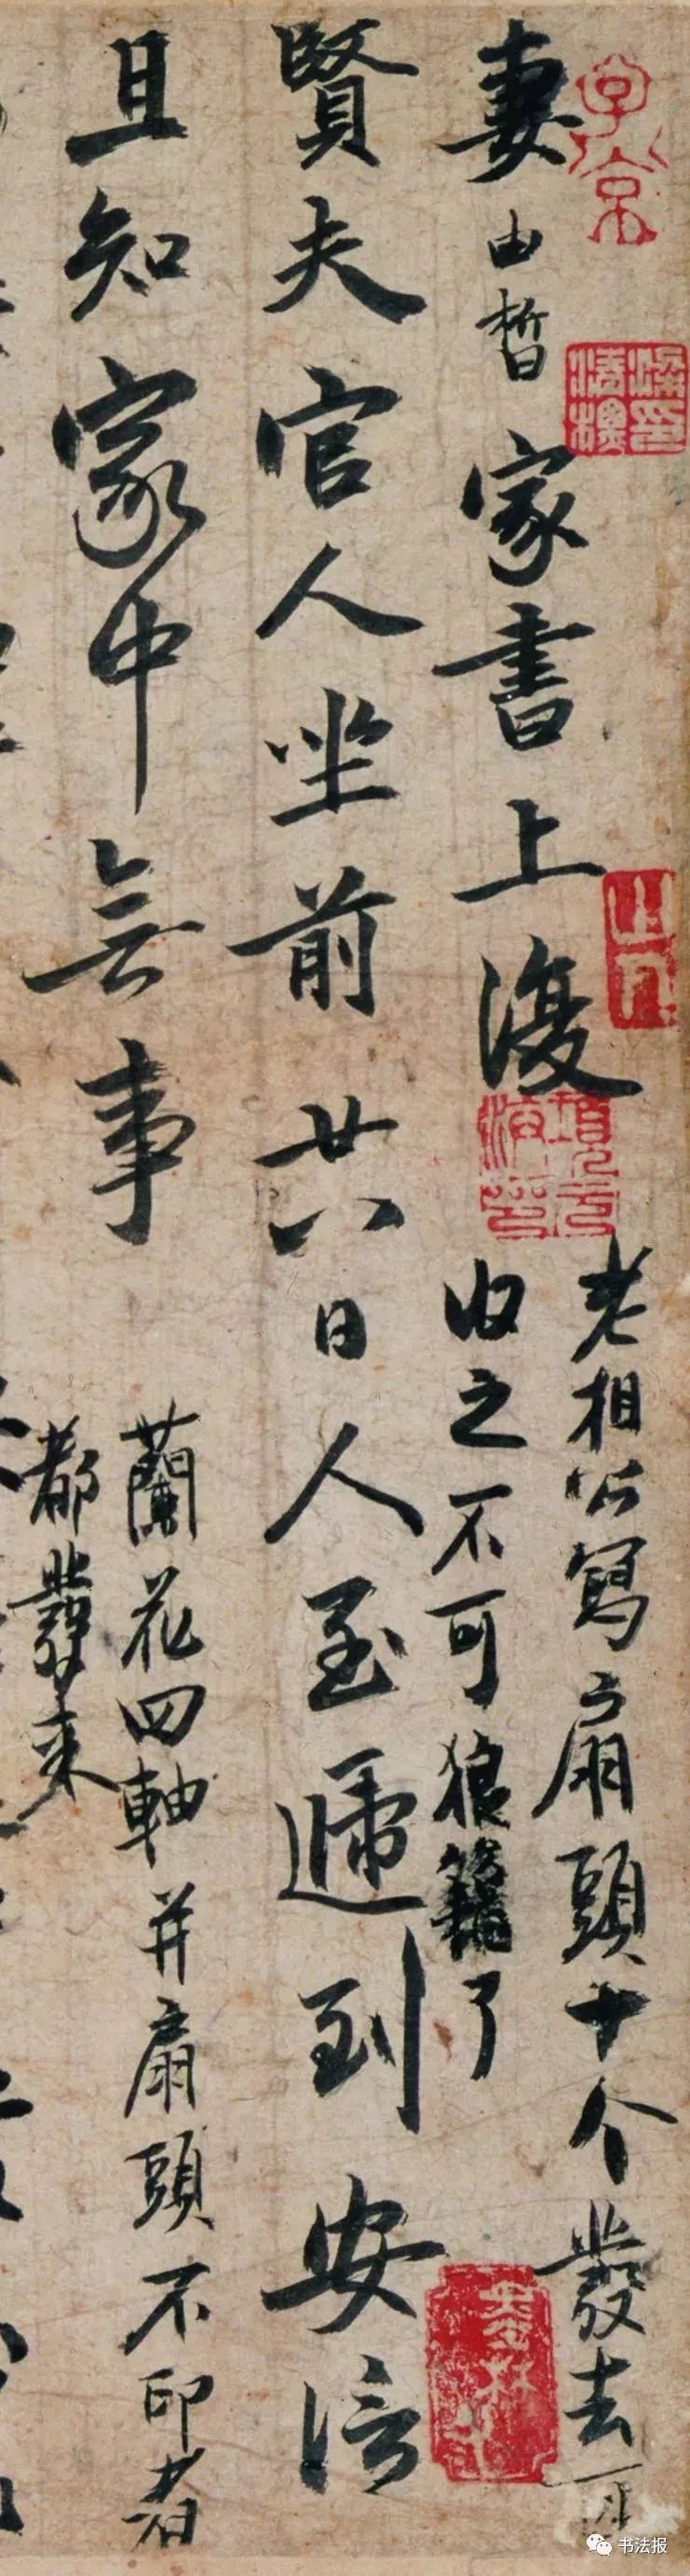 妻由皙家書上覆
老相公寫扇頭十个發去可
收之不可狼籍了
賢夫官人坐前廿八日人至遞到安信
且知家中無事
蘭花四軸并扇頭不印者
都發来
子京
项元汴印
书法报